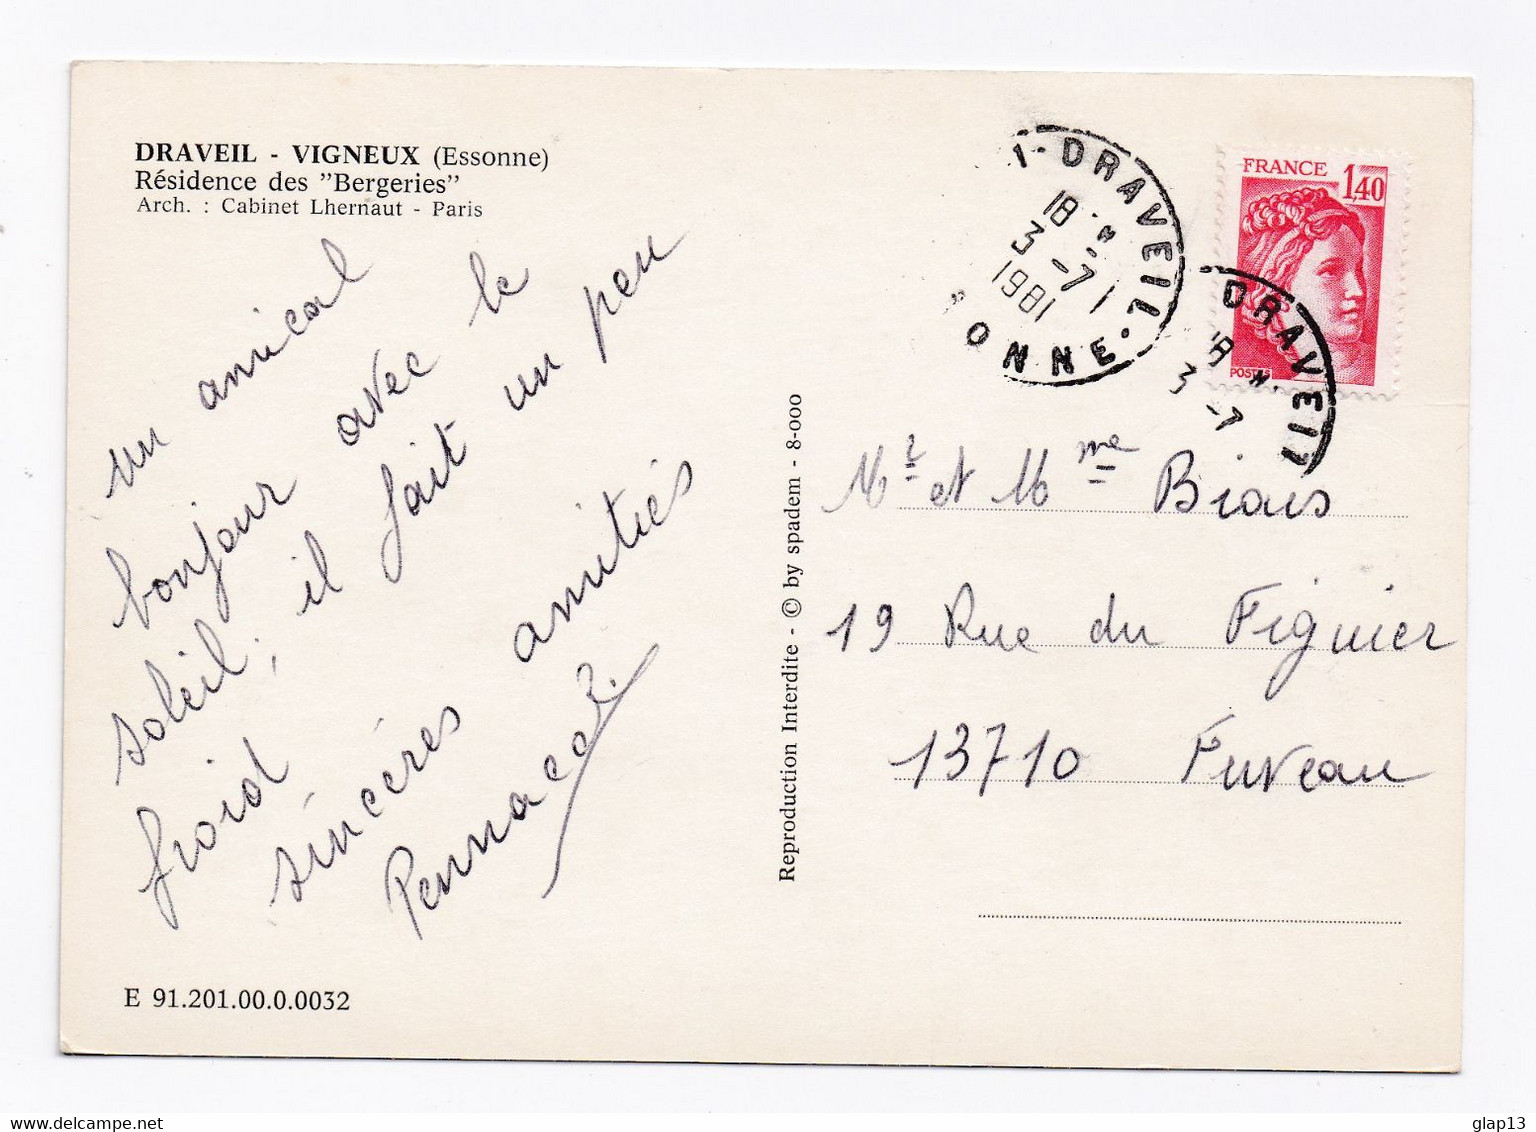 DRAVEIL - VIGNEUX (Essonne)
Résidence des "Bergeries"
Arch. : Cabinet Lhernaut - Paris
un amical
bonjour avec le
soleil, il fait un peu
froid
sincères amitiés
E 91.201.00.0.0032
Reproduction Interdite - © by spadem - 8-000
1-DRAVEIL.
18 H
3 -7
1981
ONNE.
FRANCE
1,40
POSTES
DRAVEIL
18 H.
3 -7
Mr et Mme Biais
19 Rue du Figuier
13710 Fuveau
delcampe.net
glap13